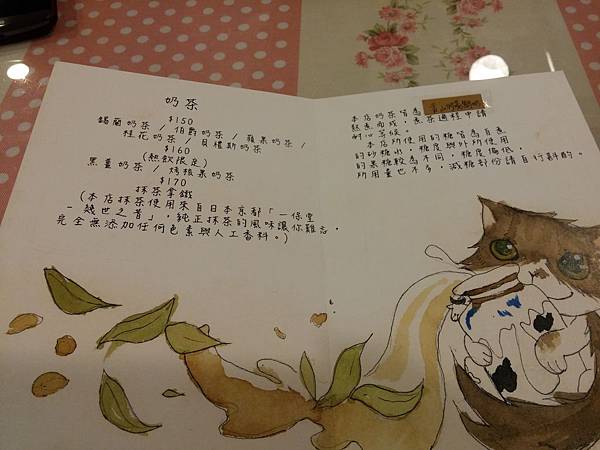 奶茶
$150
錫蘭奶茶 / 伯爵奶茶 / 蘋果奶茶 /
桂花奶茶 / 貝禮斯奶茶
$160
(熱飲限定)
黑薑奶茶 / 烤核果奶茶
$170
抹茶拿鐵
(本店抹茶使用來自日本京都「一保堂
-幾世之昔」,純正抹茶的風味讓你難忘,
完全無添加任何色素與人工香料。)
本店奶茶皆為
熬煮而成,煮茶過程中請
耐心等候。
本店所使用的糖皆為自煮
的砂糖水,糖度與外所使用
的果糖較為不同,糖度偏低,
所用量也不多,減糖部份請自行斟酌。